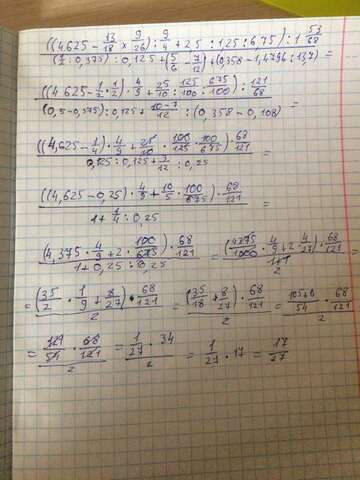 ((4,625 - 13/18 × 9/26) : 9/4 + 2,5 : 1,25 : 6,75) : 1 53/68
(1/2 : 0,375) : 0,125 + (5/6 - 7/12) + (0,358 - 1,4796 : 13,7) =
((4 625/1000 - 1/2 · 1/2) · 4/9 + 25/10 : 125/100 : 675/100) : 121/68
(0,5 - 0,375) : 0,125 + 10-7/12 : (0,358 - 0,108) =
((4,625 - 1/4) · 4/9 + 25/10 · 100/125 · 100/675) · 68/121
0,125 : 0,125 + 3/12 : 0,25 =
((4,625 - 0,25) · 4/9 + 10/5 · 100/675) · 68/121
1 + 1/4 : 0,25 =
(4,375 · 4/9 + 2 · 100/675) · 68/121
1 + 0,25 : 0,25
= (4375/1000 · 4/9 + 2 4/27) · 68/121
1+1
2 =
= (35/2 · 1/9 + 8/27) · 68/121
2
= (35/18 + 8/27) · 68/121
2
= 105+6/54 · 68/121
2
= 121/54 · 68/121
2
= 1/27 · 34
2
= 1/27 · 17 = 17/27